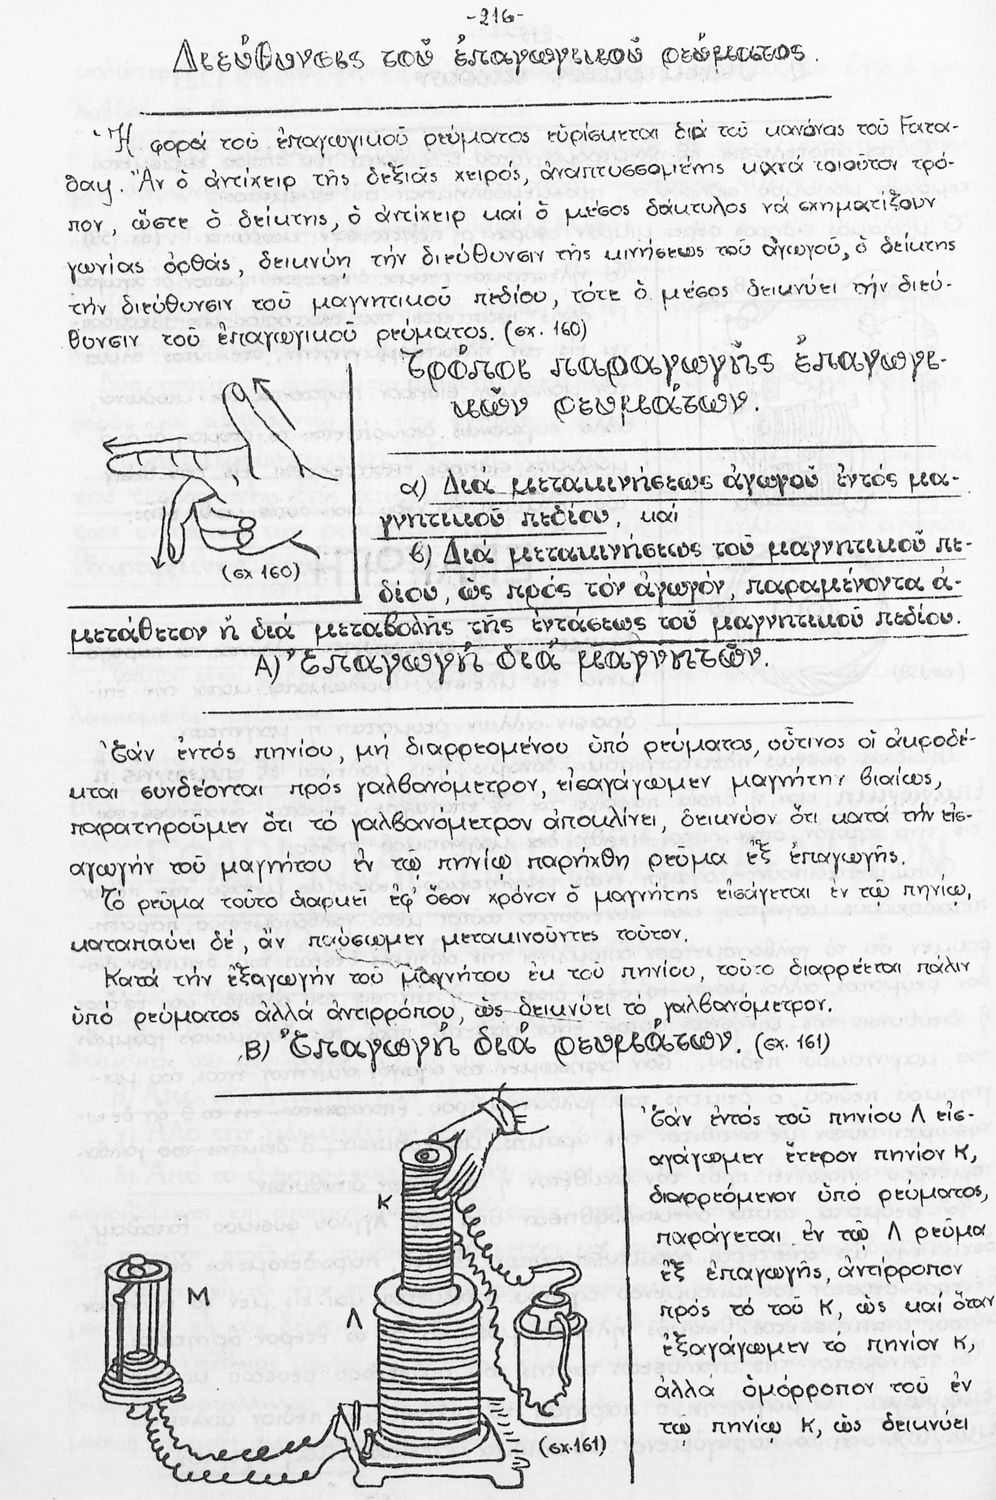 -216-
Διεύθυνσις τοῦ ἐπαγωγικοῦ ρεύματος.
Ἡ φορά τοῦ ἐπαγωγικοῦ ρεύματος εὑρίσκεται διά τοῦ κανόνος τοῦ Fara-
day. Ἄν ὁ ἀντίχειρ τῆς δεξιᾶς χειρός, ἀναπτυσσομένης κατά τοιοῦτον τρό-
πον, ὥστε ὁ δείκτης, ὁ ἀντίχειρ καί ὁ μέσος δάκτυλος νά σχηματίζουν
γωνίας ὀρθάς, δεικνύῃ τήν διεύθυνσιν τῆς κινήσεως τοῦ ἀγωγοῦ, ὁ δείκτης
τήν διεύθυνσιν τοῦ μαγνητικοῦ πεδίου, τότε ὁ μέσος δεικνύει τήν διεύ-
θυνσιν τοῦ ἐπαγωγικοῦ ρεύματος. (σχ. 160)
Τρόποι παραγωγῆς ἐπαγωγι-
κῶν ρευμάτων.
α) Διά μετακινήσεως ἀγωγοῦ ἐντός μα-
γνητικοῦ πεδίου, καί
β) Διά μετακινήσεως τοῦ μαγνητικοῦ πε-
δίου, ὡς πρός τόν ἀγωγόν, παραμένοντα ἀ-
μετάθετον ἤ διά μεταβολῆς τῆς ἐντάσεως τοῦ μαγνητικοῦ πεδίου.
(σχ 160)
Α) Ἐπαγωγή διά μαγνητῶν.
Ἐάν ἐντός πηνίου, μή διαρρεομένου ὑπό ρεύματος, οὗτινος οἱ ἀκροδέ-
κται συνδέονται πρός γαλβανόμετρον, εἰσαγάγωμεν μαγνήτην βιαίως,
παρατηροῦμεν ὅτι τό γαλβανόμετρον ἀποκλίνει, δεικνύον ὅτι κατά τήν εἰσ-
αγωγήν τοῦ μαγνήτου ἐν τῳ πηνίῳ παρήχθη ρεῦμα ἐξ ἐπαγωγῆς.
Τό ρεῦμα τοῦτο διαρκεῖ ἐφ' ὅσον χρόνον ὁ μαγνήτης εἰσάγεται ἐν τῳ πηνίῳ,
καταπαύει δέ, ἄν παύσωμεν μετακινοῦντες τοῦτον.
Κατά τήν ἐξαγωγήν τοῦ μαγνήτου ἐκ τοῦ πηνίου, τοῦτο διαρρέεται πάλιν
ὑπό ρεύματος ἀλλά ἀντιρρόπου, ὡς δεικνύει τό γαλβανόμετρον.
Β) Ἐπαγωγή διά ρευμάτων. (σχ. 161)
Ἐάν ἐντός τοῦ πηνίου Λ εἰσ-
αγάγωμεν ἕτερον πηνίον Κ,
διαρρεόμενον ὑπό ρεύματος,
παράγεται ἐν τῷ Λ ρεῦμα
ἐξ ἐπαγωγῆς, ἀντίρροπον
πρός τό τοῦ Κ, ὡς καί ὅταν
ἐξαγάγωμεν τό πηνίον Κ,
ἀλλά ὁμόρροπον τοῦ ἐν
τῷ πηνίῳ Κ, ὡς δεικνύει
Κ
Μ
Λ
(σχ.161)